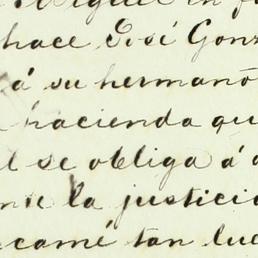 hace José Gonz
á su hermano
hacienda qu
l se obliga á
la justicia
came tan luc